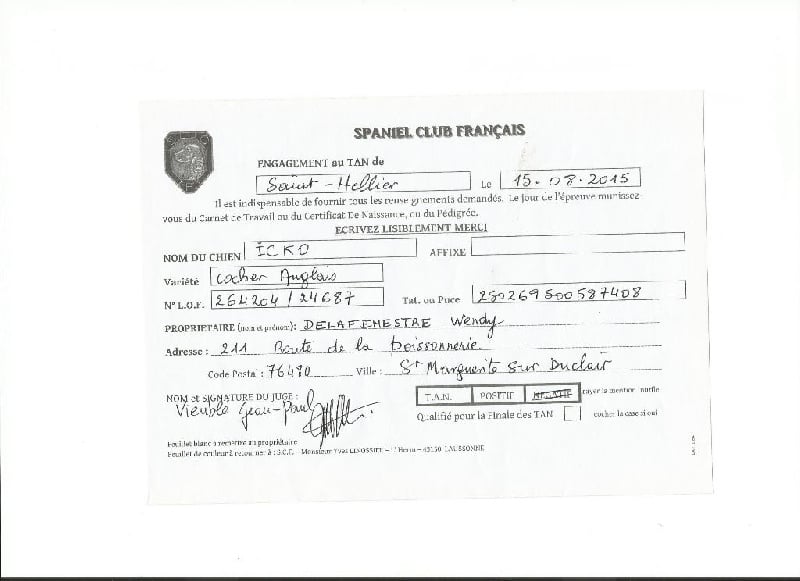 SPANIEL CLUB FRANÇAIS
ENGAGEMENT au TAN de
Saint-Hellier Le 15.08.2015
Il est indispensable de fournir tous les renseignements demandés. Le jour de l'épreuve munissez
vous du Carnet de Travail ou du Certificat De Naissance, ou du Pédigrée.
ECRIVEZ LISIBLEMENT MERCI
NOM DU CHIEN ICKO AFFIXE
Variété Cocker Anglais
N° L.O.F. 264204/24687 Tat. ou Puce 250269500587408
PROPRIETAIRE (nom et prénom): DELAFENESTRE Wendy
Adresse : 211 Route de la poissonnerie.
Code Postal : 76480 Ville : St Marguerite sur Duclair
NOM et SIGNATURE DU JUGE :
Vieuble Jean-Paul
T.A.N. POSITIF NEGATIF rayer la mention inutile
Qualifié pour la Finale des TAN cocher la case si oui
Feuillet blanc à remettre au propriétaire
Feuillet de couleur à retourner à : S.C.F. - Monsieur Yves - 43150 LAUSSONNE